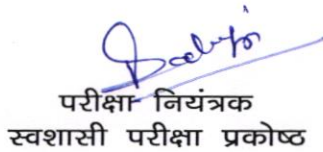 परीक्षा नियंत्रक
स्वशासी परीक्षा प्रकोष्ठ